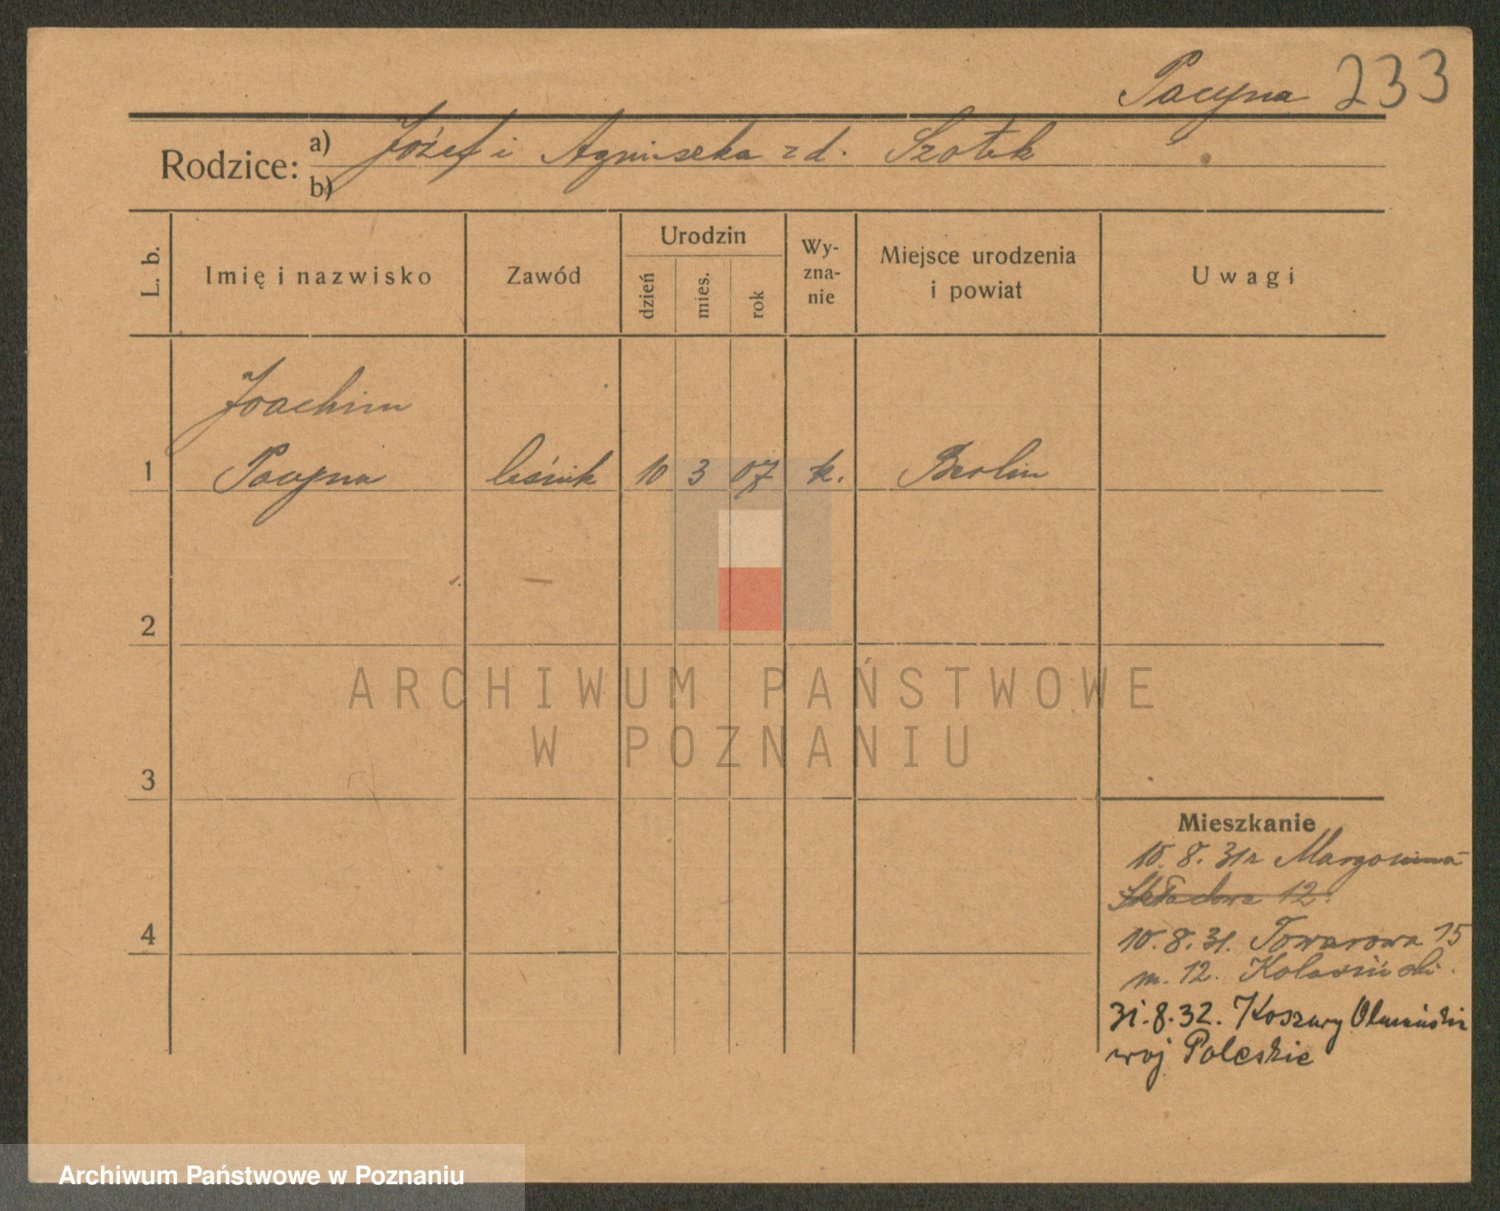 Pacyna 233
Rodzice: a) Józef i Agnieszka z d. Szołtk
b)
L. b.
Imię i nazwisko
Zawód
Urodzin
dzień
mies.
rok
Wy-
zna-
nie
Miejsce urodzenia
i powiat
Uwagi
Joachim
1 Pacyna leśnik 10 3 07 k. Berlin
2
ARCHIWUM PAŃSTWOWE
W POZNANIU
3
Mieszkanie
10. 8. 31r
Składowa 12.
4
10. 8. 31. Towarowa 15
m. 12.
31. 8. 32. Koszary
woj Poleskie
Archiwum Państwowe w Poznaniu